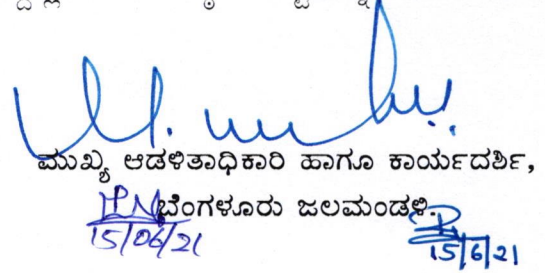 ಮುಖ್ಯ ಆಡಳಿತಾಧಿಕಾರಿ ಹಾಗೂ ಕಾರ್ಯದರ್ಶಿ,
ಬೆಂಗಳೂರು ಜಲಮಂಡಳಿ.
15/06/21
15/6/21